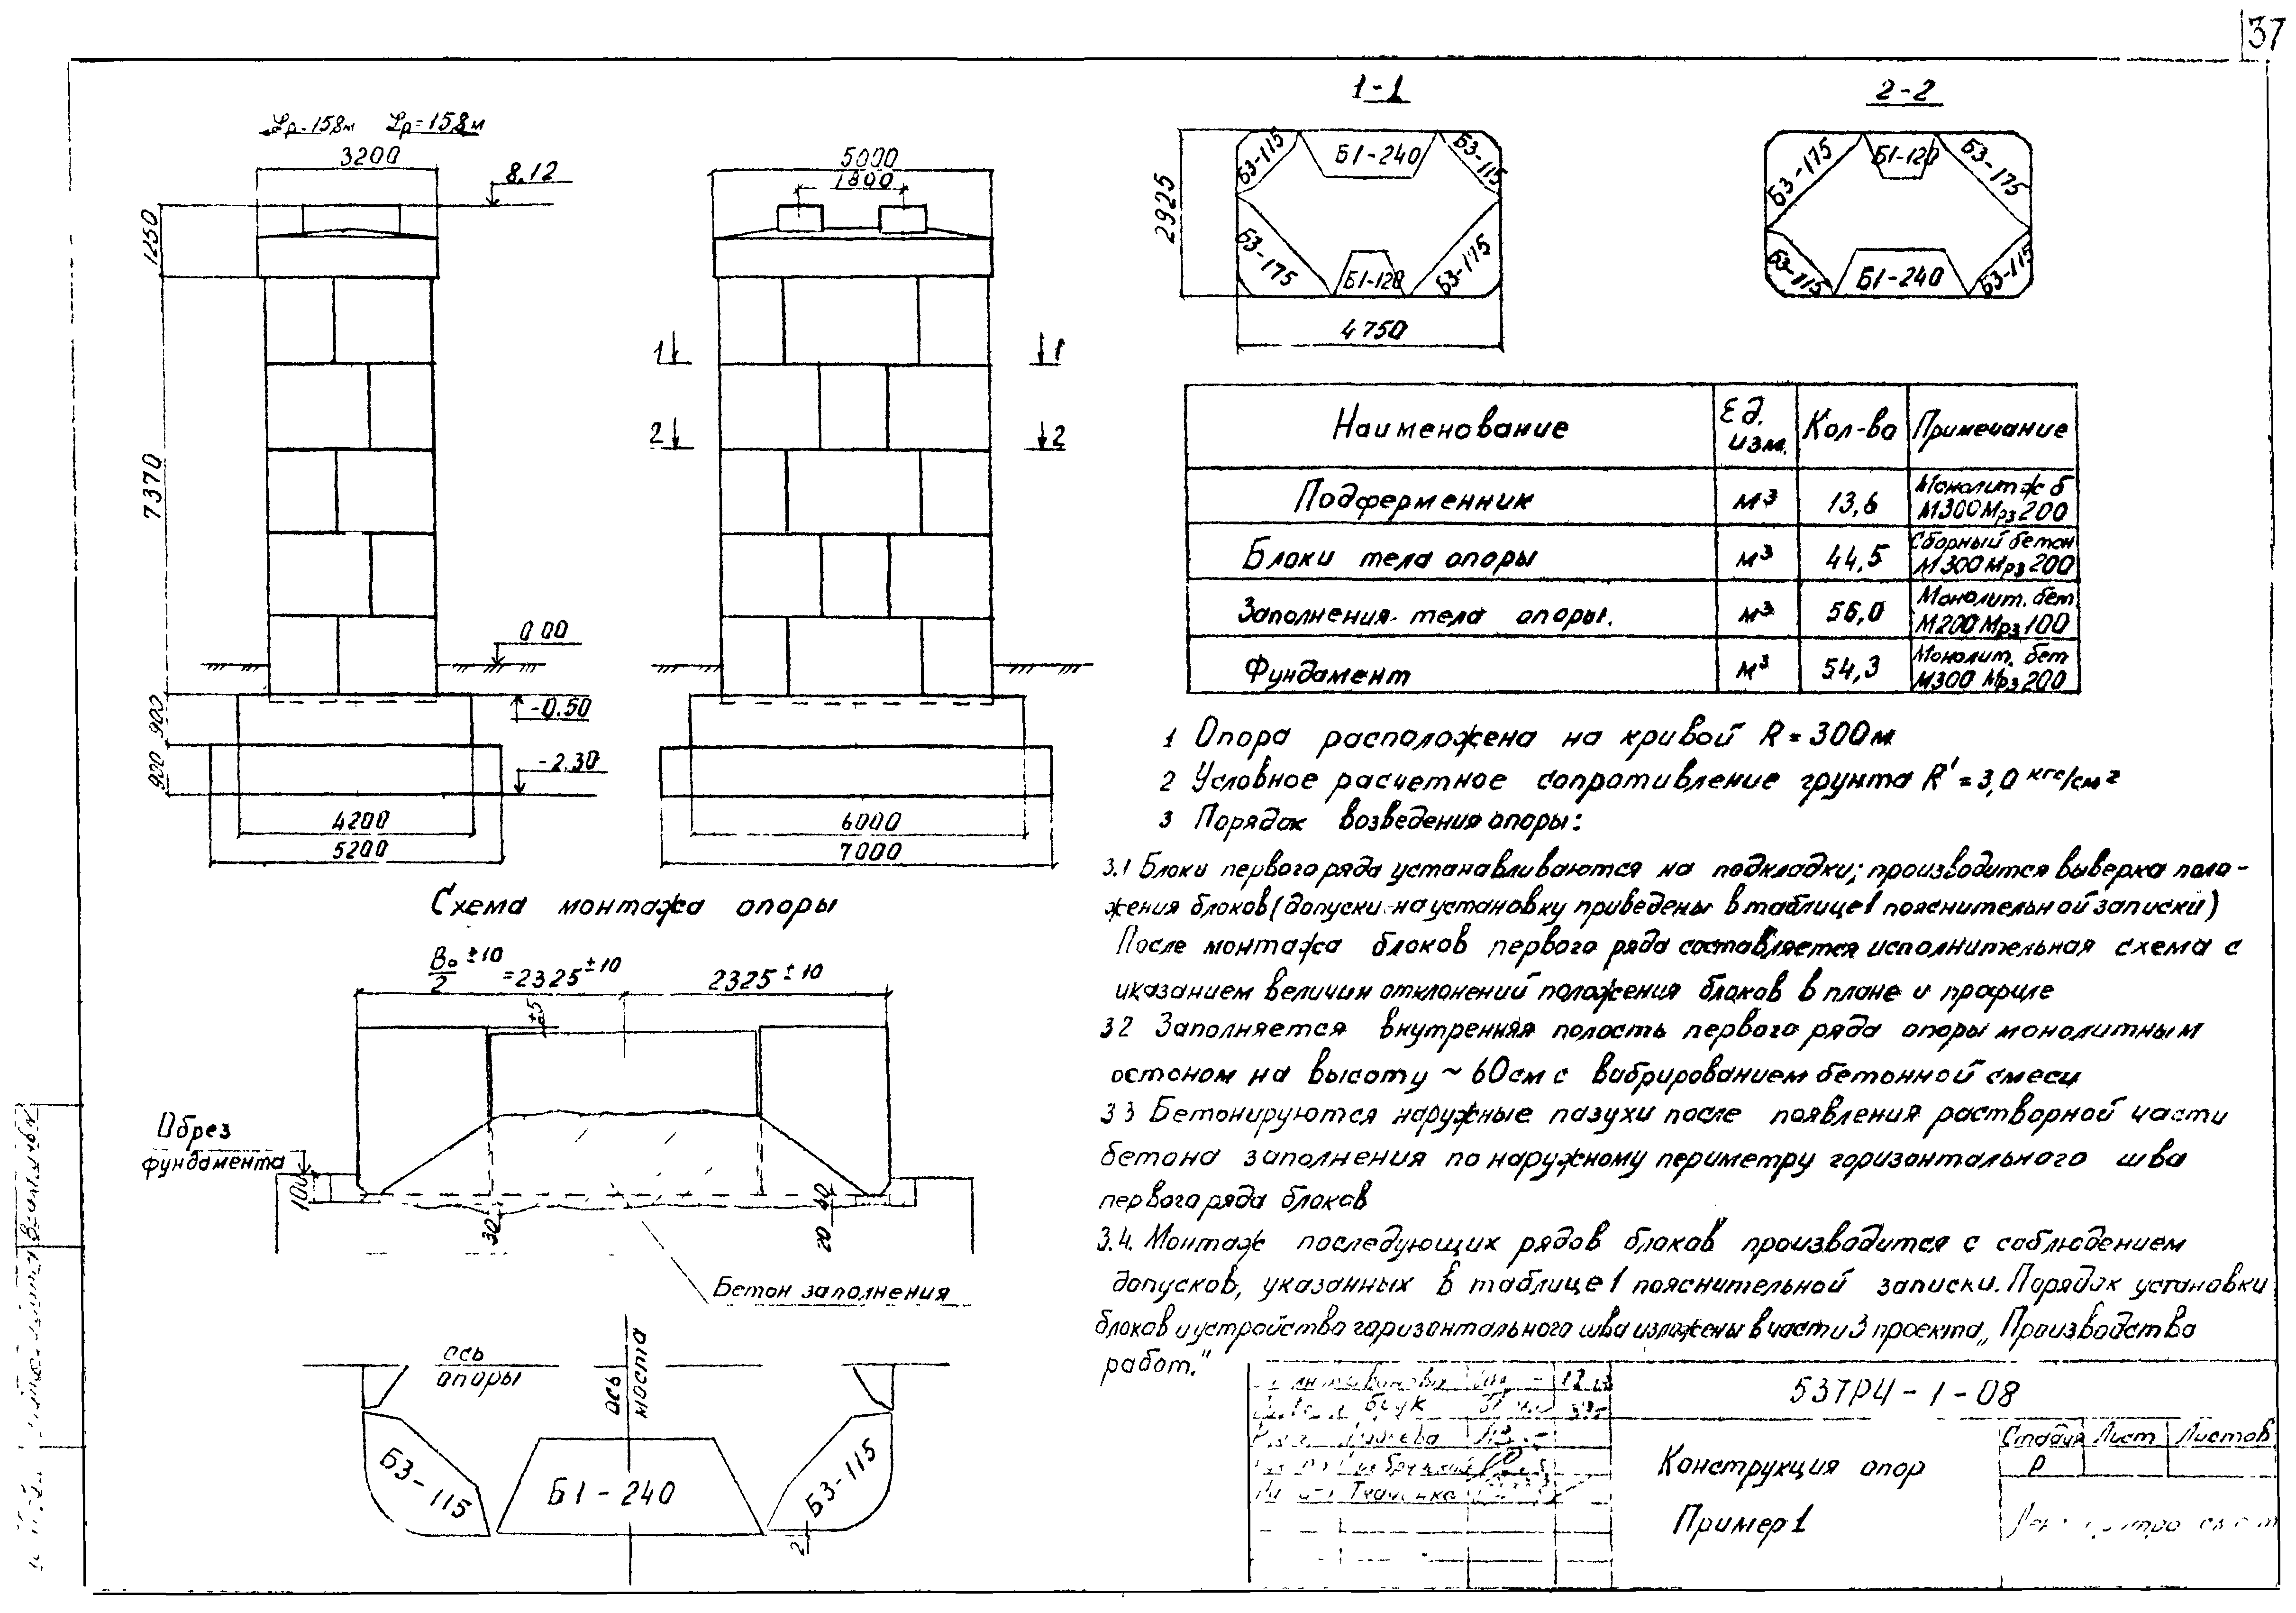 37
Lр=15,8м Lр=15,8м
3200
8.12
1250
7370
0.00
900
-0.50
900
-2.30
4200
5200
5000
1800
1 1
2 2
6000
7000
1-1
2925
Б3-115 Б1-240 Б3-115
Б3-175 Б1-120 Б3-175
4750
2-2
Б3-175 Б1-120 Б3-175
Б3-115 Б1-240 Б3-115
Наименование Ед. изм. Кол-во Примечание
Подферменник м³ 13,6 Монолит ж б М300 Мрз 200
Блоки тела опоры м³ 44,5 Сборный бетон М300 Мрз 200
Заполнения тела опоры. м³ 56,0 Монолит. бет. М200 Мрз 100
Фундамент м³ 54,3 Монолит. бет М300 Мрз 200
1 Опора расположена на кривой R = 300м
2 Условное расчетное сопротивление грунта R' = 3,0 кгс/см²
3 Порядок возведения опоры:
3.1 Блоки первого ряда устанавливаются на подкладки; производится выверка поло-
жения блоков (допуски на установку приведены в таблице 1 пояснительной записки)
После монтажа блоков первого ряда составляется исполнительная схема с
указанием величин отклонений положения блоков в плане и профиле
32 Заполняется внутренняя полость первого ряда опоры монолитным
бетоном на высоту ~ 60см с вибрированием бетонной смеси
33 Бетонируются наружные пазухи после появления растворной части
бетона заполнения по наружному периметру горизонтального шва
первого ряда блоков
3.4. Монтаж последующих рядов блоков производится с соблюдением
допусков, указанных в таблице 1 пояснительной записки. Порядок установки
блоков и устройство горизонтального шва изложены в части 3 проекта „Производство
работ."
Схема монтажа опоры
Bо/2 ±10 = 2325 ±10 2325 ±10
±5
Обрез
фундамента
100
30
20 40
Бетон заполнения
ось
опоры
ось
моста
Б3-115 Б1-240 Б3-115
2
537РЧ-1-08
Конструкция опор
Пример 1
Стадия Лист Листов
Р
Ткаченко